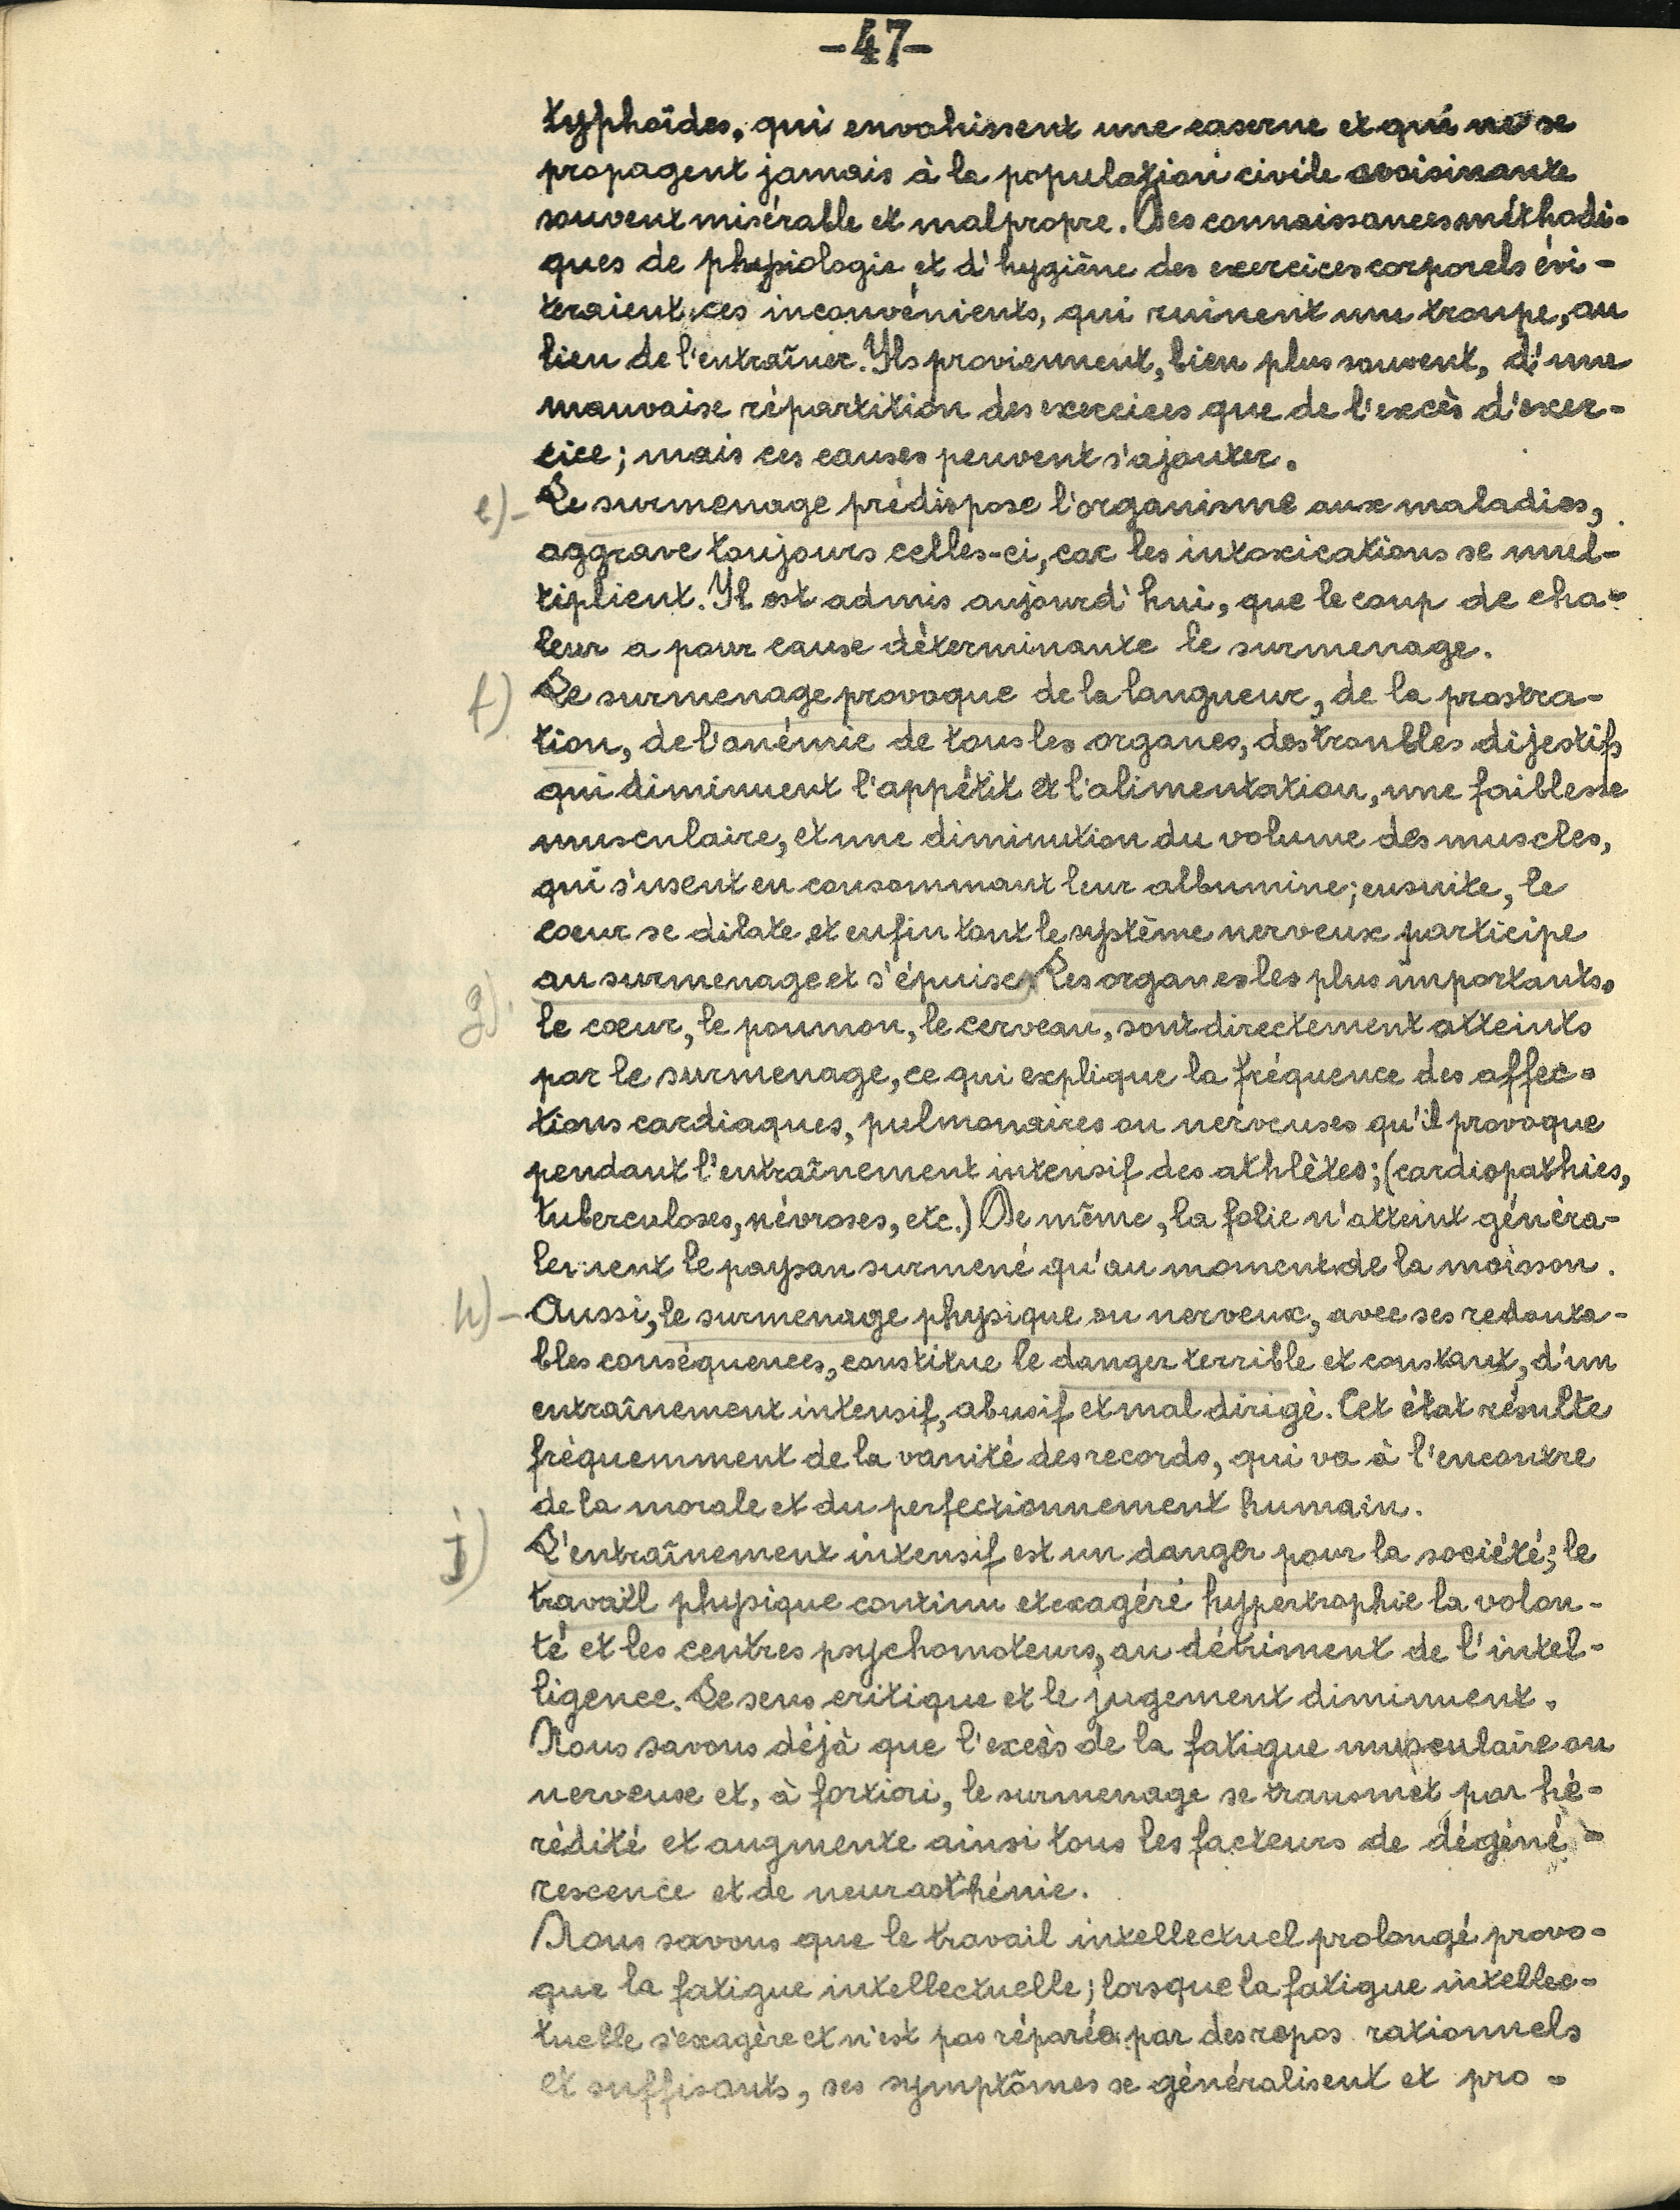 -47-
typhoïdes, qui envahissent une caserne et qui ne se
propagent jamais à la population civile avoisinante
souvent misérable et malpropre. Des connaissances méthodi-
ques de physiologie et d'hygiène des exercices corporels évi-
teraient ces inconvénients, qui ruinent une troupe, au
lieu de l'entraîner. Ils proviennent, bien plus souvent, d'une
mauvaise répartition des exercices que de l'excès d'exer-
cice; mais ces causes peuvent s'ajouter.
e)- Le surmenage prédispose l'organisme aux maladies,
aggrave toujours celles-ci, car les intoxications se mul-
tiplient. Il est admis aujourd'hui, que le coup de cha-
leur a pour cause déterminante le surmenage.
f) Le surmenage provoque de la langueur, de la prostra-
tion, de l'anémie de tous les organes, des troubles dijestifs
qui diminuent l'appétit et l'alimentation, une faiblesse
musculaire, et une diminution du volume des muscles,
qui s'usent en consommant leur albumine; ensuite, le
coeur se dilate et enfin tout le système nerveux participe
au surmenage et s'épuise. Les organes les plus importants,
g) le coeur, le poumon, le cerveau, sont directement atteints
par le surmenage, ce qui explique la fréquence des affec-
tions cardiaques, pulmonaires ou nerveuses qu'il provoque
pendant l'entraînement intensif des athlètes; (cardiopathies,
tuberculoses, névroses, etc.) De même, la folie n'atteint généra-
lement le paysan surmené qu'au moment de la moisson.
h)- Aussi, le surmenage physique ou nerveux, avec ses redouta-
bles conséquences, constitue le danger terrible et constant, d'un
entraînement intensif, abusif et mal dirigé. Cet état résulte
fréquemment de la vanité des records, qui va à l'encontre
de la morale et du perfectionnement humain.
j) L'entraînement intensif est un danger pour la société; le
travail physique continu et exagéré hypertrophie la volon-
té et les centres psychomoteurs, au détriment de l'intel-
ligence. Le sens critique et le jugement diminuent.
Nous savons déjà que l'excès de la fatigue musculaire ou
nerveuse et, à fortiori, le surmenage se transmet par hé-
rédité et augmente ainsi tous les facteurs de dégéné-
rescence et de neurasthénie.
Nous savons que le travail intellectuel prolongé provo-
que la fatigue intellectuelle; lorsque la fatigue intellec-
tuelle s'exagère et n'est pas réparée par des repos rationnels
et suffisants, ses symptômes se généralisent et pro-